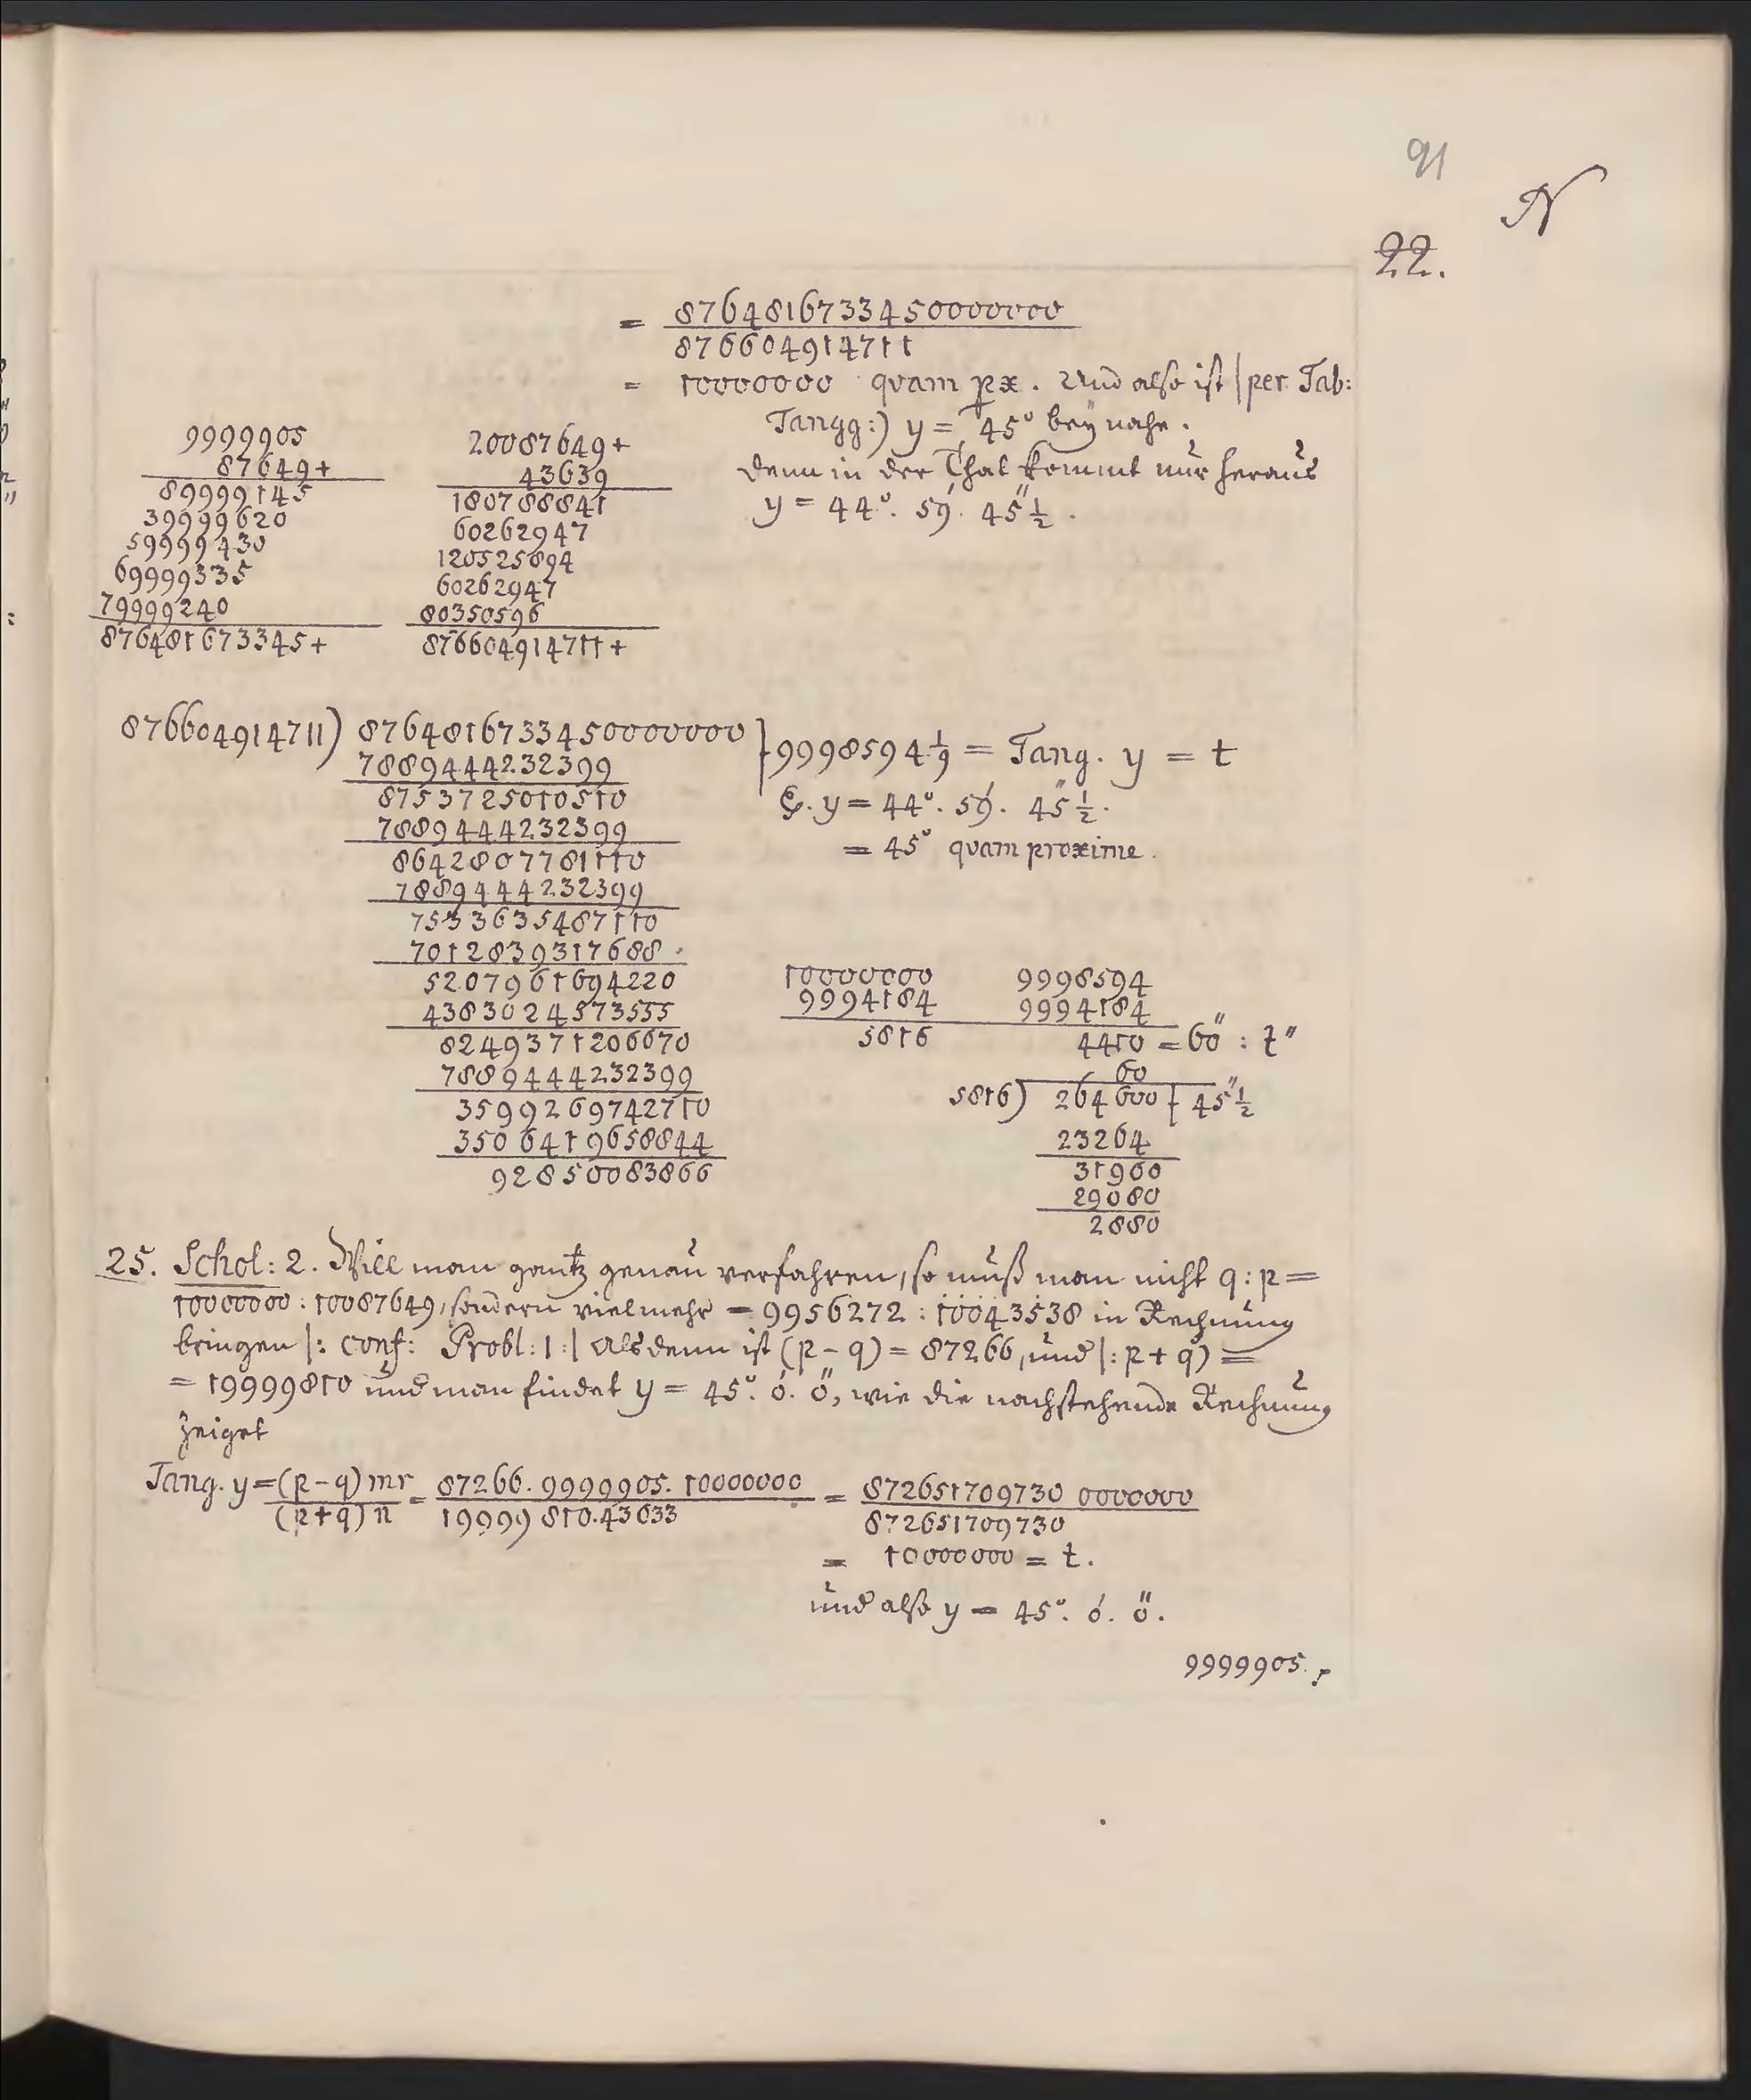 91
N
22.
= 8764816733450000000
876604914711
= 10000000 quam px. Und also ist |per Tab:
Tangg:) y = 45° beÿ nahe.
denn in der That kommt nur heraus
y = 44°. 59'. 45"½.
9999905
87649+
89999145
39999620
59999430
69999335
79999240
876481673345+
20087649+
43639
180788841
60262947
120525894
60262947
80350596
876604914711+
876604914711) 8764816733450000000 } 9998594 1/9 = Tang. y = t
7889444232399
8753725010510
7889444232399
8642807781110
7889444232399
7533635487110
7012839317688
5207961694220
4383024573555
8249371206670
7889444232399
3599269742710
3506419658844
92850083866
E. y = 44°. 59'. 45"½.
= 45° quam proxime.
10000000
9994184
5816
9998594
9994184
4410 = 60" : z"
60
5816) 264600 { 45"½
23264
31960
29080
2880
25. Schol: 2. Will man gantz genau verfahren, so muß man nicht q : p =
10000000 : 10087649, sondern vielmehr = 9956272 : 10043538 in Rechnung
bringen |: conf: Probl: 1 :| Alsdenn ist (p – q) = 87266, und |: p + q) =
= 19999810 und man findet y = 45°. 0'. 0", wie die nachstehende Rechnung
zeiget
Tang. y = (p – q) mr = 87266. 9999905. 10000000 = 872651709730 0000000
(p + q) n 19999810. 43633 872651709730
= 10000000 = t.
und also y = 45°. 0'. 0".
9999905.